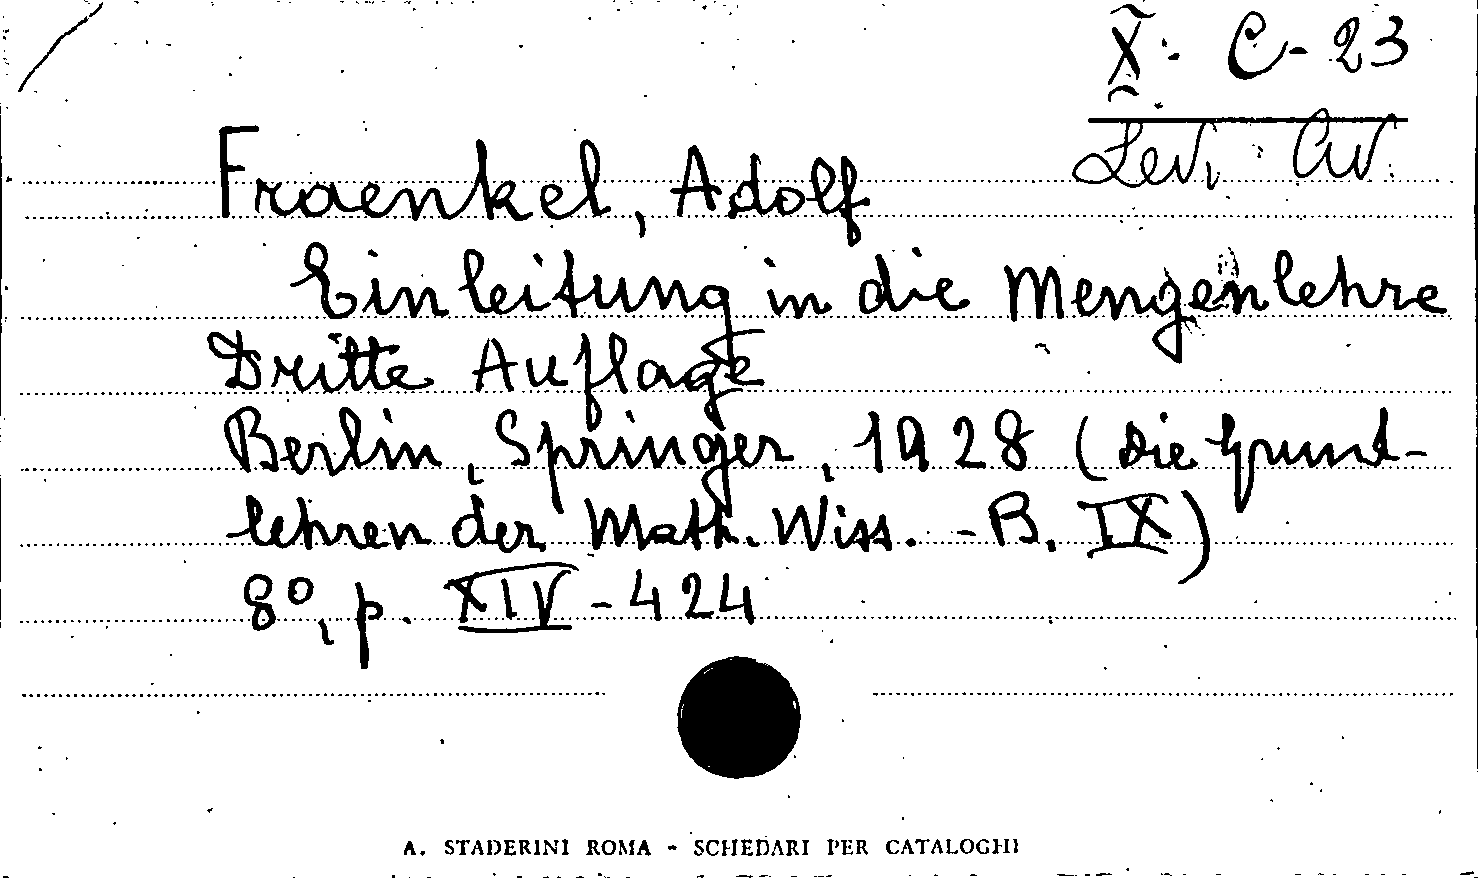 X. C-23
Lev. Civ.
Fraenkel, Adolf
Einleitung in die Mengenlehre
Dritte Auflage
Berlin, Springer, 1928 (Die Grund-
lehren der Math. Wiss. - B. IX)
8°, p. XIV - 424
A. STADERINI ROMA - SCHEDARI PER CATALOGHI